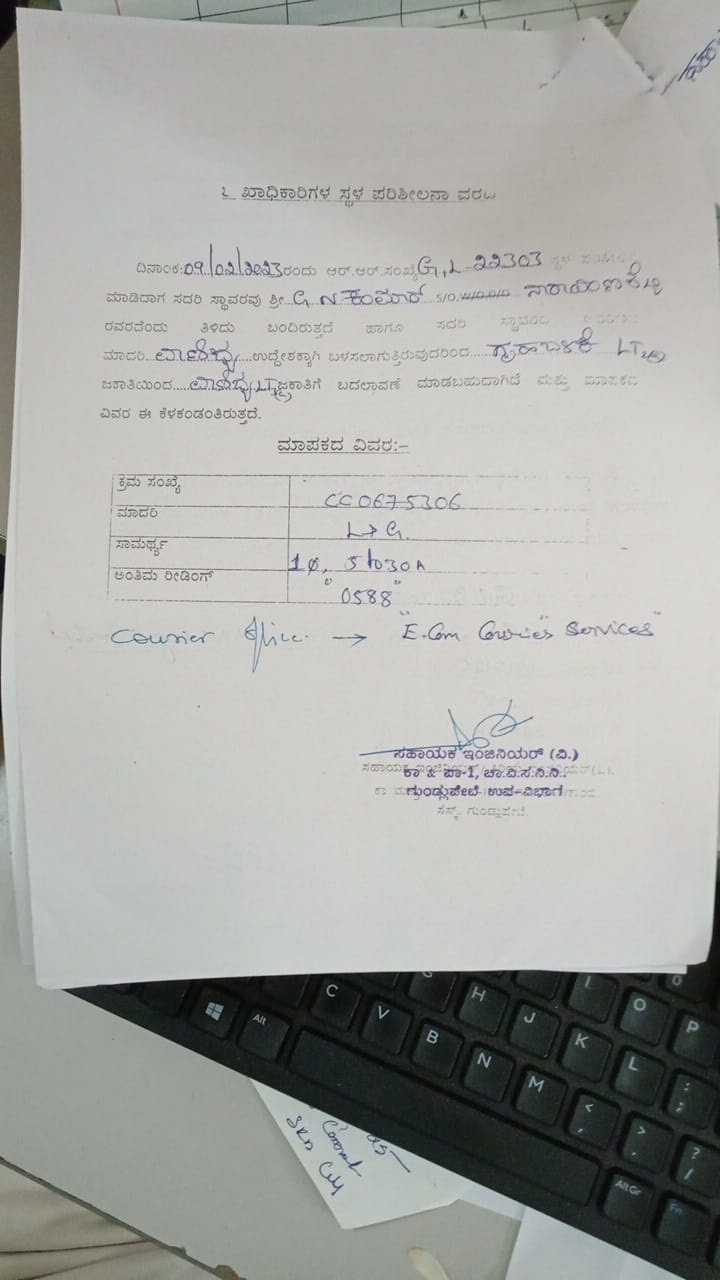 ಖಾಧಿಕಾರಿಗಳ ಸ್ಥಳ ಪರಿಶೀಲನಾ ವರದಿ
ದಿನಾಂಕ:09/02/2023ರಂದು ಆರ್.ಆರ್.ಸಂಖ್ಯೆ G, L-22303 ಸ್ಥಳ
ಮಾಡಿದಾಗ ಸದರಿ ಸ್ಥಾವರವು ಶ್ರೀ..G N ಕುಮಾರ್ S/O,W/O,D/O
ರವರದೆಂದು ತಿಳಿದು ಬಂದಿರುತ್ತದೆ ಹಾಗೂ ಸದರಿ ಸ್ಥಾವರದ
ಮಾದರಿ...ವಾಣಿಜ್ಯ...ಉದ್ದೇಶಕ್ಕಾಗಿ ಬಳಸಲಾಗುತ್ತಿರುವುದರಿಂದ.....ಗೃಹಬಳಕೆ
ಜಕಾತಿಯಿಂದ.....ವಾಣಿಜ್ಯ ಜಕಾತಿಗೆ ಬದಲಾವಣೆ ಮಾಡಬಹುದಾಗಿದೆ ಮತ್ತು ಮಾಪಕದ
ವಿವರ ಈ ಕೆಳಕಂಡಂತಿರುತ್ತದೆ.
ಮಾಪಕದ ವಿವರ:-
ಕ್ರಮ ಸಂಖ್ಯೆ CC0675306
ಮಾದರಿ L>G.
ಸಾಮರ್ಥ್ಯ 1Φ, 5to30A
ಅಂತಿಮ ರೀಡಿಂಗ್ "0588"
Courier office. → "E.Com Couries Services"
ಸಹಾಯಕ ಇಂಜಿನಿಯರ್ (ವಿ.)
ಕಾ & ಪಾ-1, ಚಾ.ವಿ.ಸ.ನಿ.ನಿ.
ಗುಂಡ್ಲುಪೇಟೆ ಉಪ-ವಿಭಾಗ
ಸೆಸ್ಕ್, ಗುಂಡ್ಲುಪೇಟೆ.
C V B N M
H J K L
I O P
Alt
AltGr
Fn